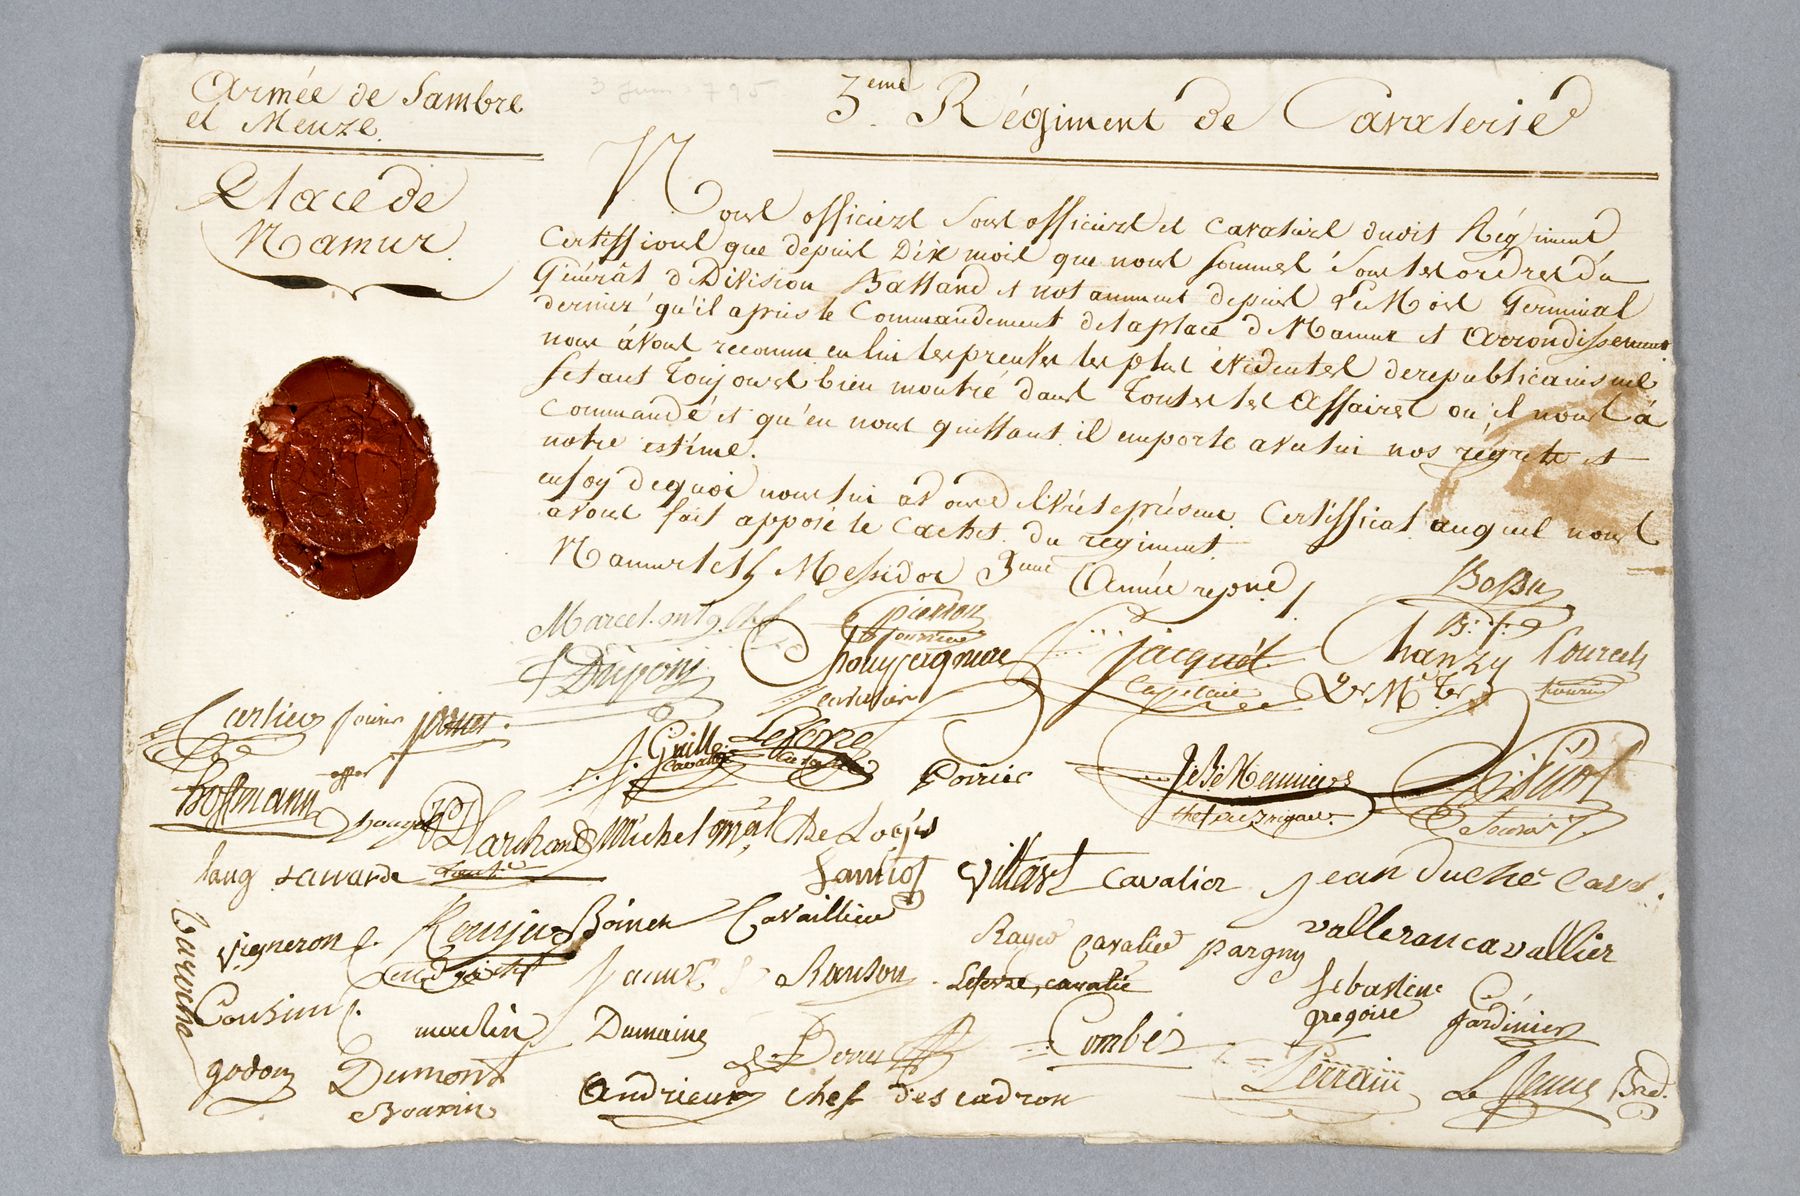 Armée de Sambre
et Meuze.
3 Juin 1795
3eme Régiment de Cavalerie
Place de
Namur.
Nous officiers Sous officiers et Cavaliers dudit Régiment
Certiffions que depuis Dix mois que nous Sommes Sous les ordres du
Général de Division Balland et notamment depuis Le Mois Germinal
dernier qu'il a pris le Commandement de la place de Namur et Arrondissement
nous avons reconnu en lui les preuves les plus évidentes de republicanisme
s'etant Toujours bien montré dans Toutes les Affaires ou il nous à
Commandé et qu'en nous quittant il emporte avec lui nos régrets et
notre estime.
en foy de quoi nous lui avons délivré le présent Certifficat auquel nous
avons fait apposé le Cachet du régiment
Namur le Messidor 3eme Année répne
Bossu
Marcel
pierson
fourrier
Dupons
jacquét
Capitaine
Chanzy
Carlier
Guille
Cavalier
Lefevre
Poirier
Hoffmann
offer
Marchand
Michel mal De Logis
Lang
Villars Cavalier
jean duché Cavr.
Vigneron
Boinet Cavaillier
Cavalier pargny
valleran cavallier
Ranson
Lefevre, cavalié
Sebastien
gregoire
jardinier
Cousin
Laroche
moulin
Dumaine
Combes
godon
Dumont
Andrieux chef d'escadron
Perrain
Le Jeune Brd.